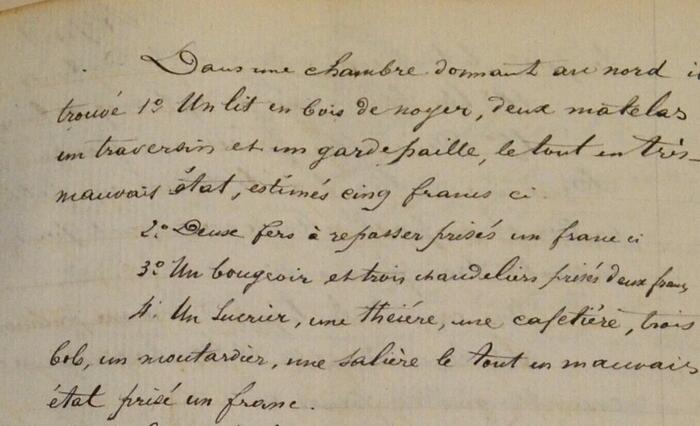 Dans une chambre donnant au nord i
trouvé 1° Un lit en bois de noyer, deux matelas
un traversin et un gardepaille, le tout en très-
mauvais état, estimés cinq francs ci
2° Deux fers à repasser prisés un franc ci
3° Un bougeoir et trois chandeliers prisés deux francs
4° Un Sucrier, une théiére, une cafetiére, trois
bob, un moutardier, une salière le tout en mauvais
état prisé un franc.